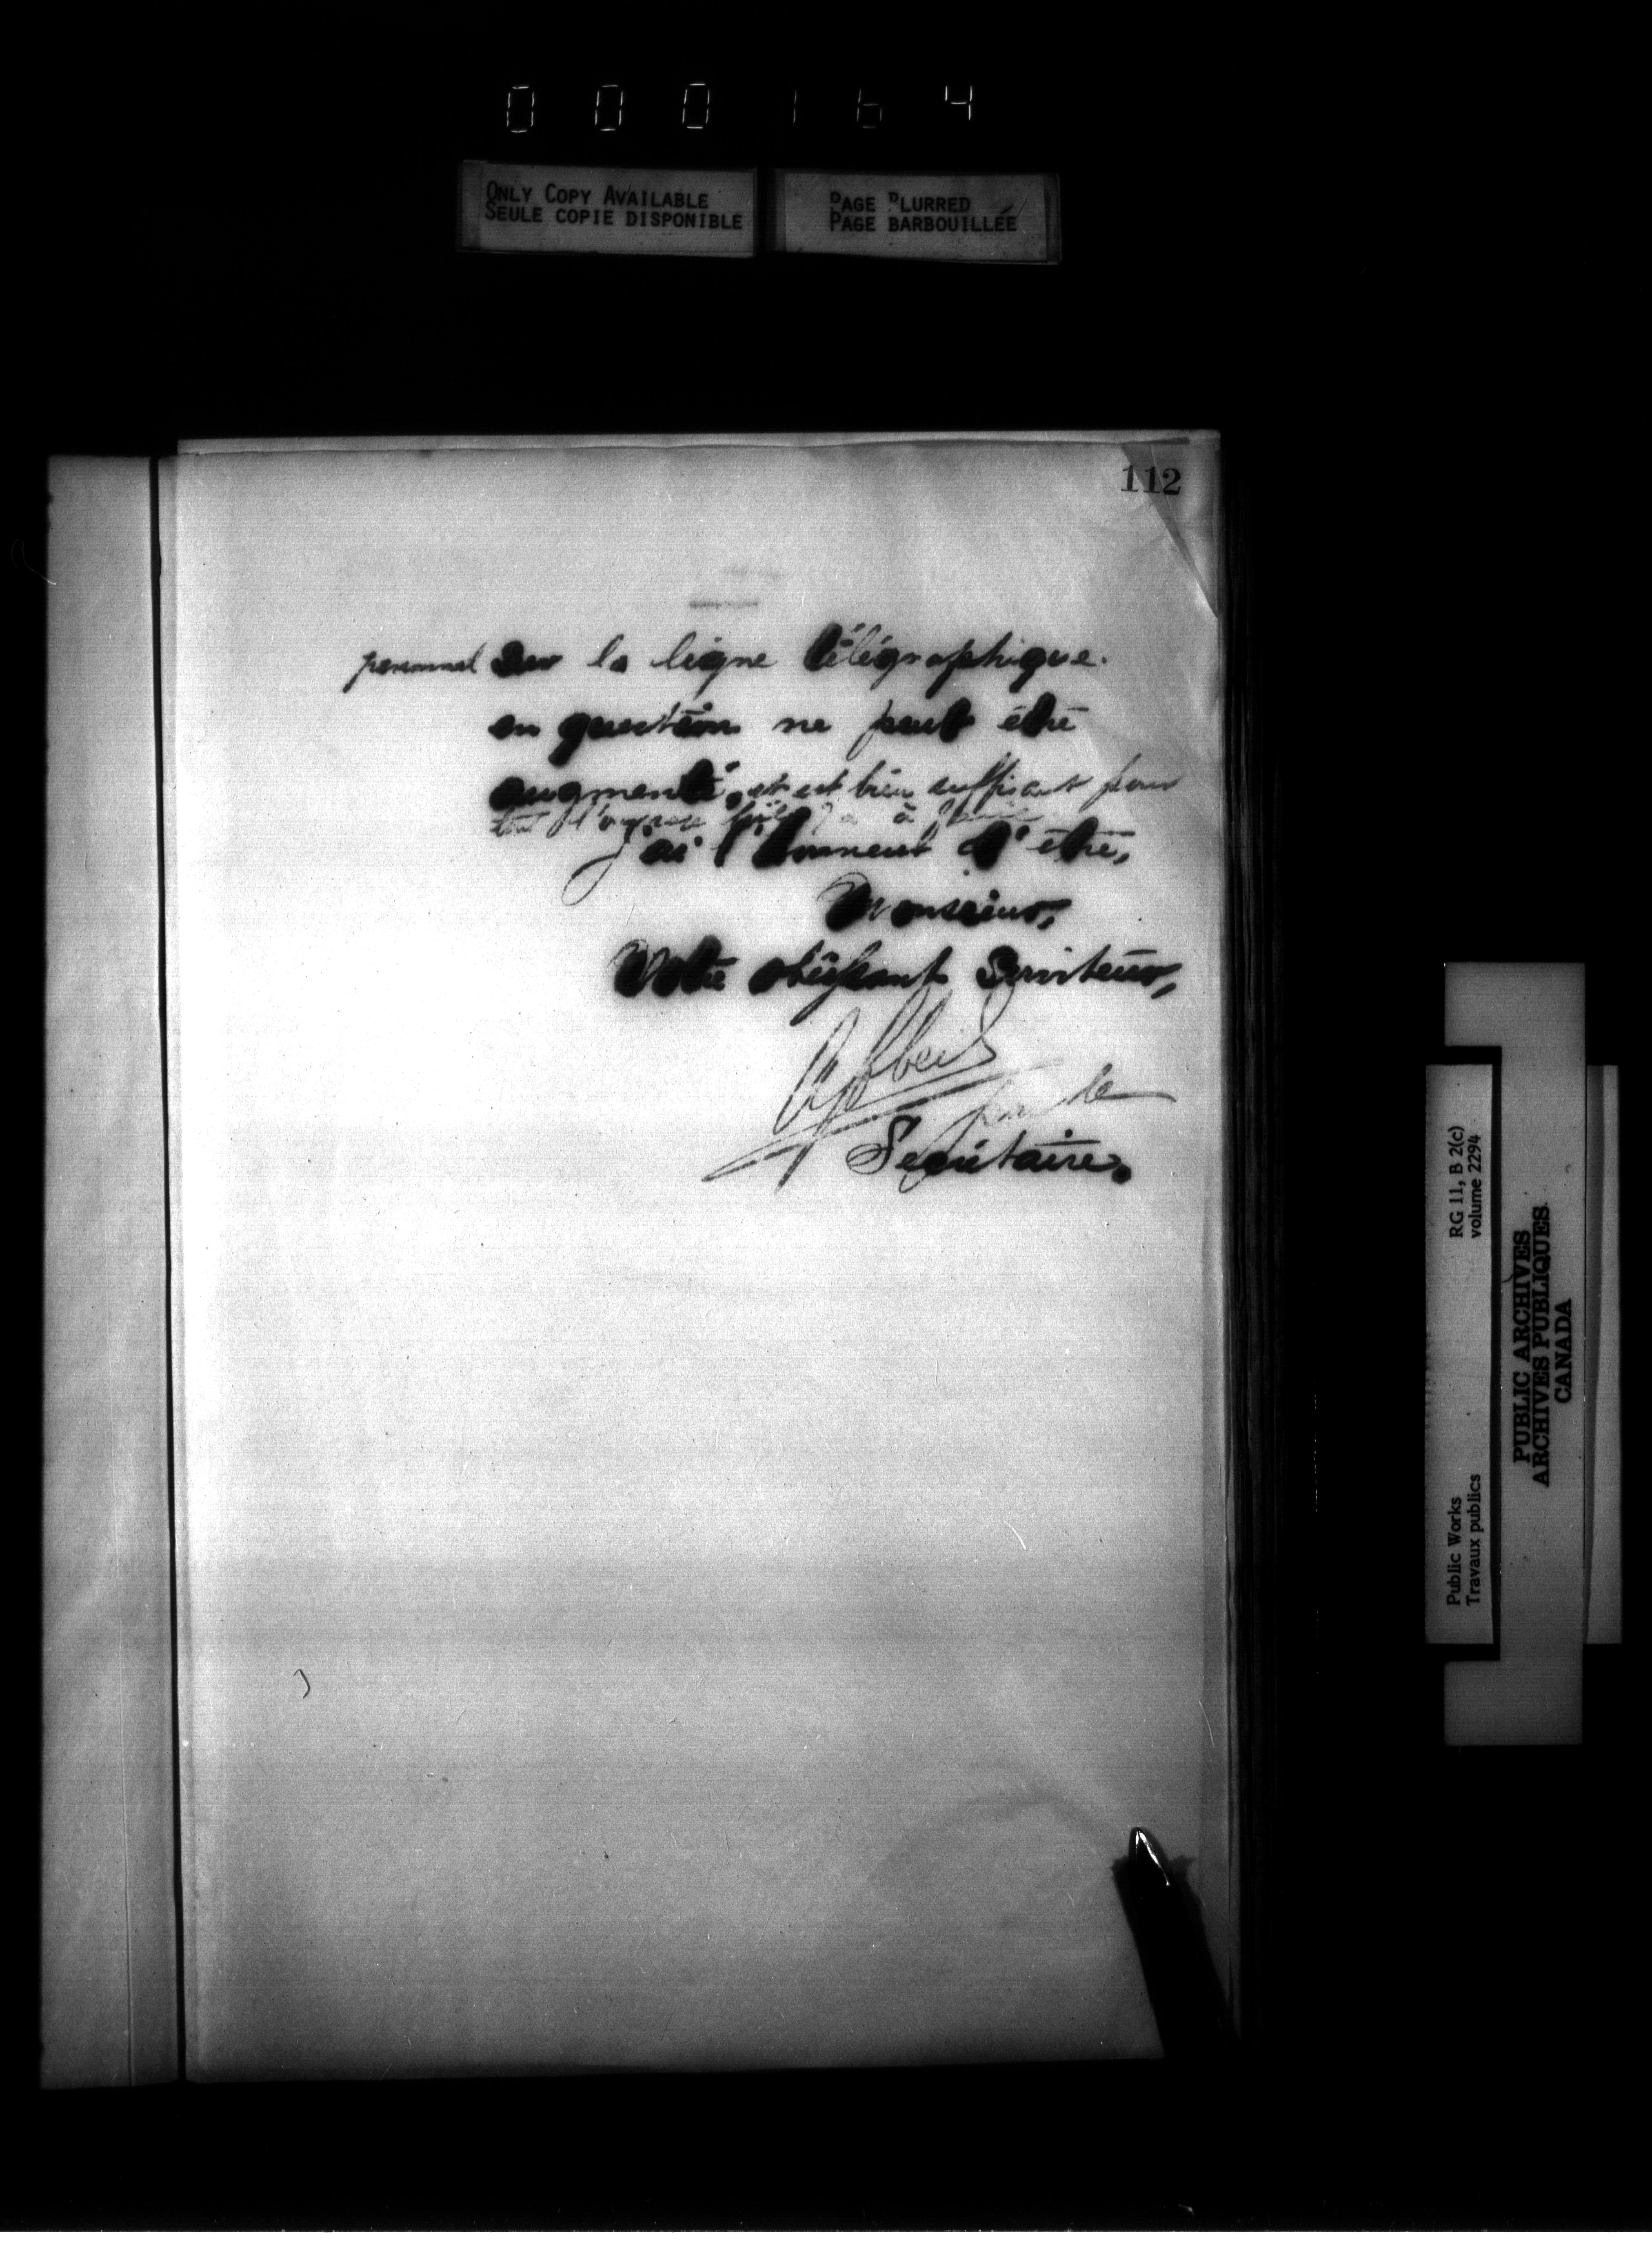 000164
ONLY COPY AVAILABLE
SEULE COPIE DISPONIBLE
PAGE BLURRED
PAGE BARBOUILLÉE
112
personnel sur la ligne télégraphique
en question ne peut être
augmenté, et est bien suffisant pour
tout l'ouvrage qu'il y a à faire
j'ai l'honneur d'être,
Monsieur,
Votre obéissant Serviteur,
pour le
Secrétaire.
Public Works
Travaux publics
RG 11, B 2(c)
volume 2294
PUBLIC ARCHIVES
ARCHIVES PUBLIQUES
CANADA